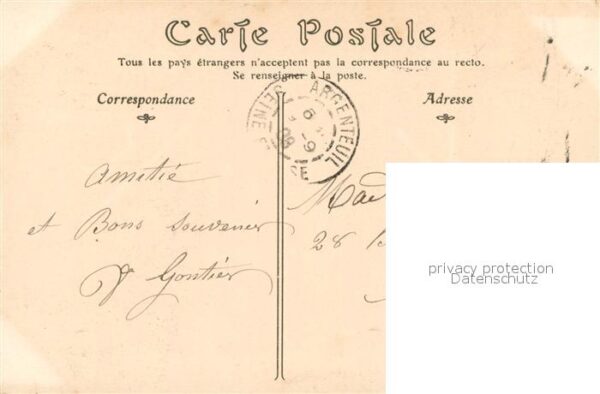 Carte Postale
Tous les pays étrangers n'acceptent pas la correspondance au recto.
Se renseigner à la poste.
Correspondance
Adresse
ARGENTEUIL
Amitié
et Bons souvenirs
Gontier
28
privacy protection
Datenschutz